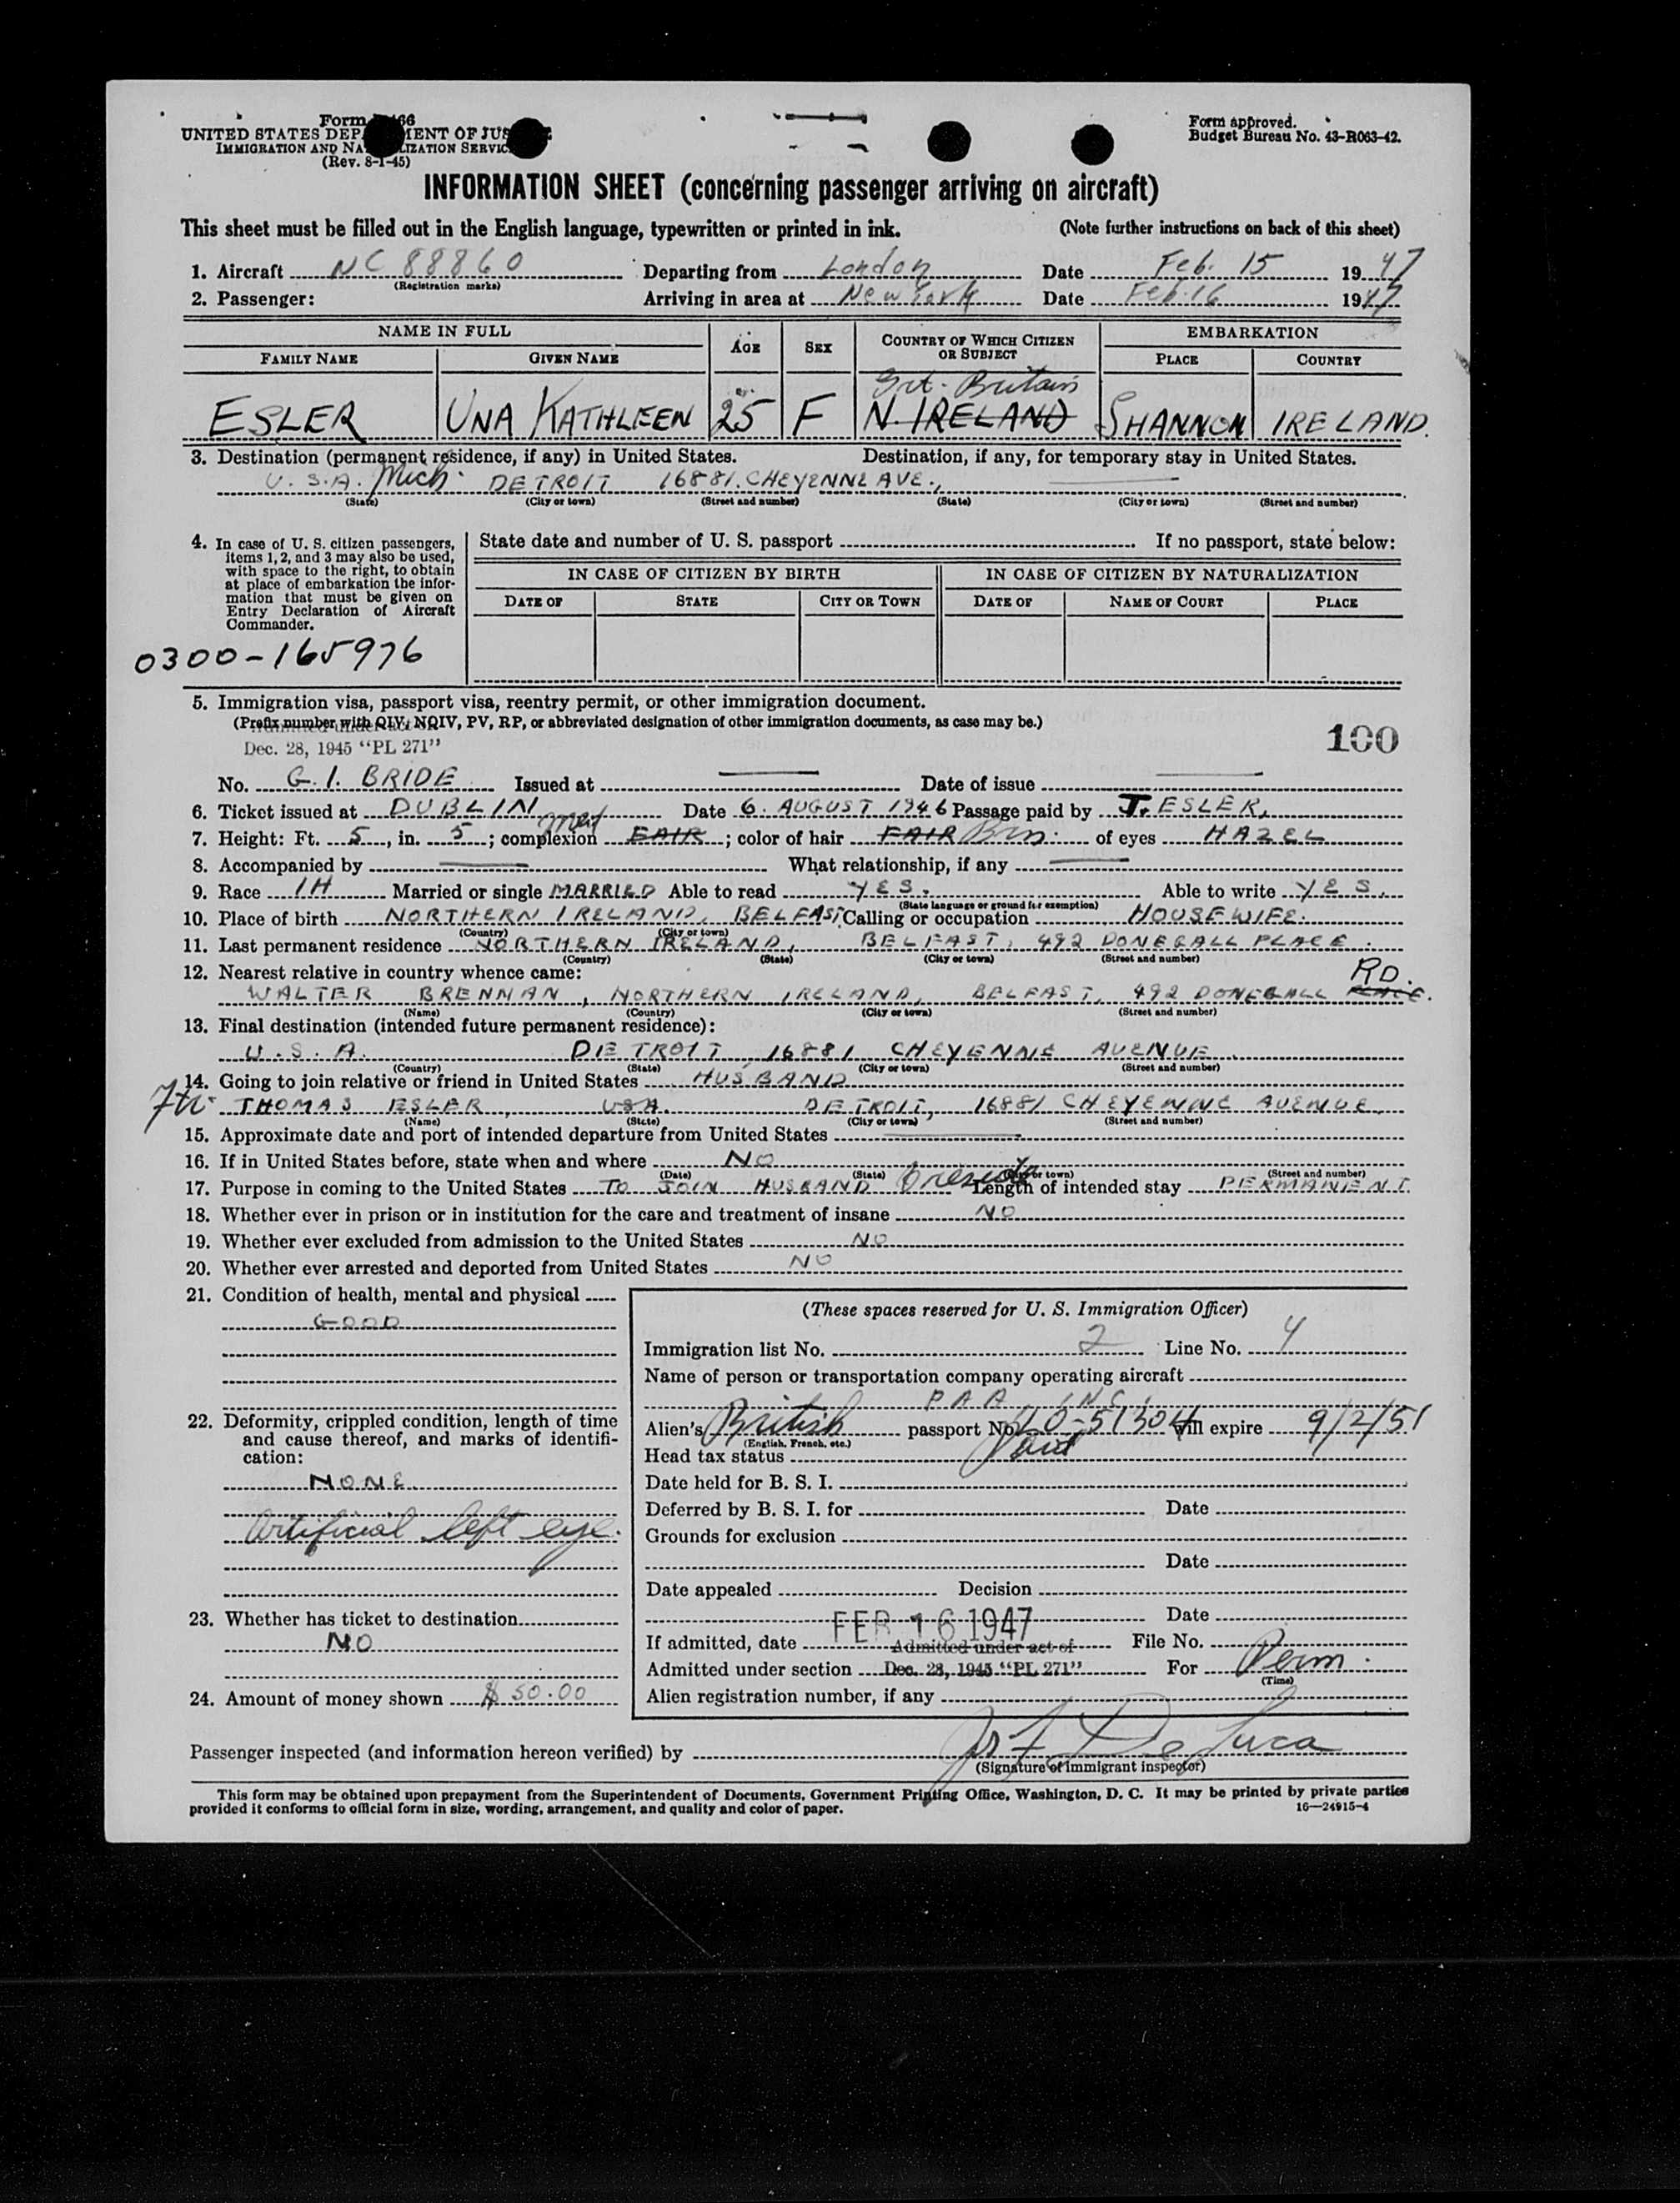 Form 66
UNITED STATES DEP MENT OF JUS
IMMIGRATION AND NA LIZATION SERVIC
(Rev. 8-1-45)
Form approved.
Budget Bureau No. 43-R063-42.
INFORMATION SHEET (concerning passenger arriving on aircraft)
This sheet must be filled out in the English language, typewritten or printed in ink. (Note further instructions on back of this sheet)
1. Aircraft NC 88860 Departing from London Date Feb. 15 1947
(Registration marks)
2. Passenger: Arriving in area at New York Date Feb. 16 1947
NAME IN FULL AGE SEX COUNTRY OF WHICH CITIZEN OR SUBJECT EMBARKATION
FAMILY NAME GIVEN NAME PLACE COUNTRY
Grt. Britain
ESLER UNA KATHLEEN 25 F N. IRELAND SHANNON IRELAND.
3. Destination (permanent residence, if any) in United States. Destination, if any, for temporary stay in United States.
U.S.A. Mich. DETROIT 16881. CHEYENNE AVE.,
(State) (City or town) (Street and number) (State) (City or town) (Street and number)
4. In case of U. S. citizen passengers, items 1, 2, and 3 may also be used, with space to the right, to obtain at place of embarkation the information that must be given on Entry Declaration of Aircraft Commander.
State date and number of U. S. passport If no passport, state below:
IN CASE OF CITIZEN BY BIRTH IN CASE OF CITIZEN BY NATURALIZATION
DATE OF STATE CITY OR TOWN DATE OF NAME OF COURT PLACE
0300-165976
5. Immigration visa, passport visa, reentry permit, or other immigration document.
(Prefix number with QIV, NQIV, PV, RP, or abbreviated designation of other immigration documents, as case may be.)
Dec. 28, 1945 "PL 271"
100
No. G.I. BRIDE Issued at Date of issue
6. Ticket issued at DUBLIN Date 6. AUGUST 1946 Passage paid by J. ESLER,
7. Height: Ft. 5, in. 5; complexion FAIR med; color of hair FAIR Brn. of eyes HAZEL
8. Accompanied by What relationship, if any
9. Race IH Married or single MARRIED Able to read YES. Able to write YES.
(State language or ground for exemption)
10. Place of birth NORTHERN IRELAND, BELFAST, Calling or occupation HOUSEWIFE.
(Country) (City or town)
11. Last permanent residence NORTHERN IRELAND, BELFAST, 492 DONEGALL PLACE.
(Country) (State) (City or town) (Street and number)
12. Nearest relative in country whence came:
RD.
WALTER BRENNAN, NORTHERN IRELAND, BELFAST, 492 DONEGALL PLACE.
(Name) (Country) (City or town) (Street and number)
13. Final destination (intended future permanent residence):
U.S.A. DETROIT, 16881 CHEYENNE AVENUE.
(Country) (State) (City or town) (Street and number)
14. Going to join relative or friend in United States HUSBAND
THOMAS ESLER, USA. DETROIT, 16881 CHEYENNE AVENUE.
(Name) (State) (City or town) (Street and number)
15. Approximate date and port of intended departure from United States
16. If in United States before, state when and where NO
(Date) (State) (City or town) (Street and number)
17. Purpose in coming to the United States TO JOIN HUSBAND Length of intended stay PERMANENT.
18. Whether ever in prison or in institution for the care and treatment of insane NO
19. Whether ever excluded from admission to the United States NO
20. Whether ever arrested and deported from United States NO
21. Condition of health, mental and physical
GOOD
22. Deformity, crippled condition, length of time and cause thereof, and marks of identification:
NONE.
Artificial left eye.
23. Whether has ticket to destination
NO
24. Amount of money shown $50.00
(These spaces reserved for U. S. Immigration Officer)
Immigration list No. 2 Line No. 4
Name of person or transportation company operating aircraft
PAA INC.
Alien's British passport No. LO-51304 Will expire 9/2/51
(English, French, etc.)
Head tax status Paid
Date held for B. S. I.
Deferred by B. S. I. for Date
Grounds for exclusion
Date
Date appealed Decision
Date
If admitted, date FEB 16 1947 File No.
Admitted under act of
Admitted under section Dec. 28, 1945 "PL 271" For Perm.
(Time)
Alien registration number, if any
Passenger inspected (and information hereon verified) by Jos F De Luca
(Signature of immigrant inspector)
This form may be obtained upon prepayment from the Superintendent of Documents, Government Printing Office, Washington, D. C. It may be printed by private parties
provided it conforms to official form in size, wording, arrangement, and quality and color of paper. 16—24915-4